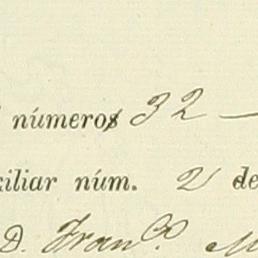 números 32 —
xiliar núm. 2 de
D. Franco.